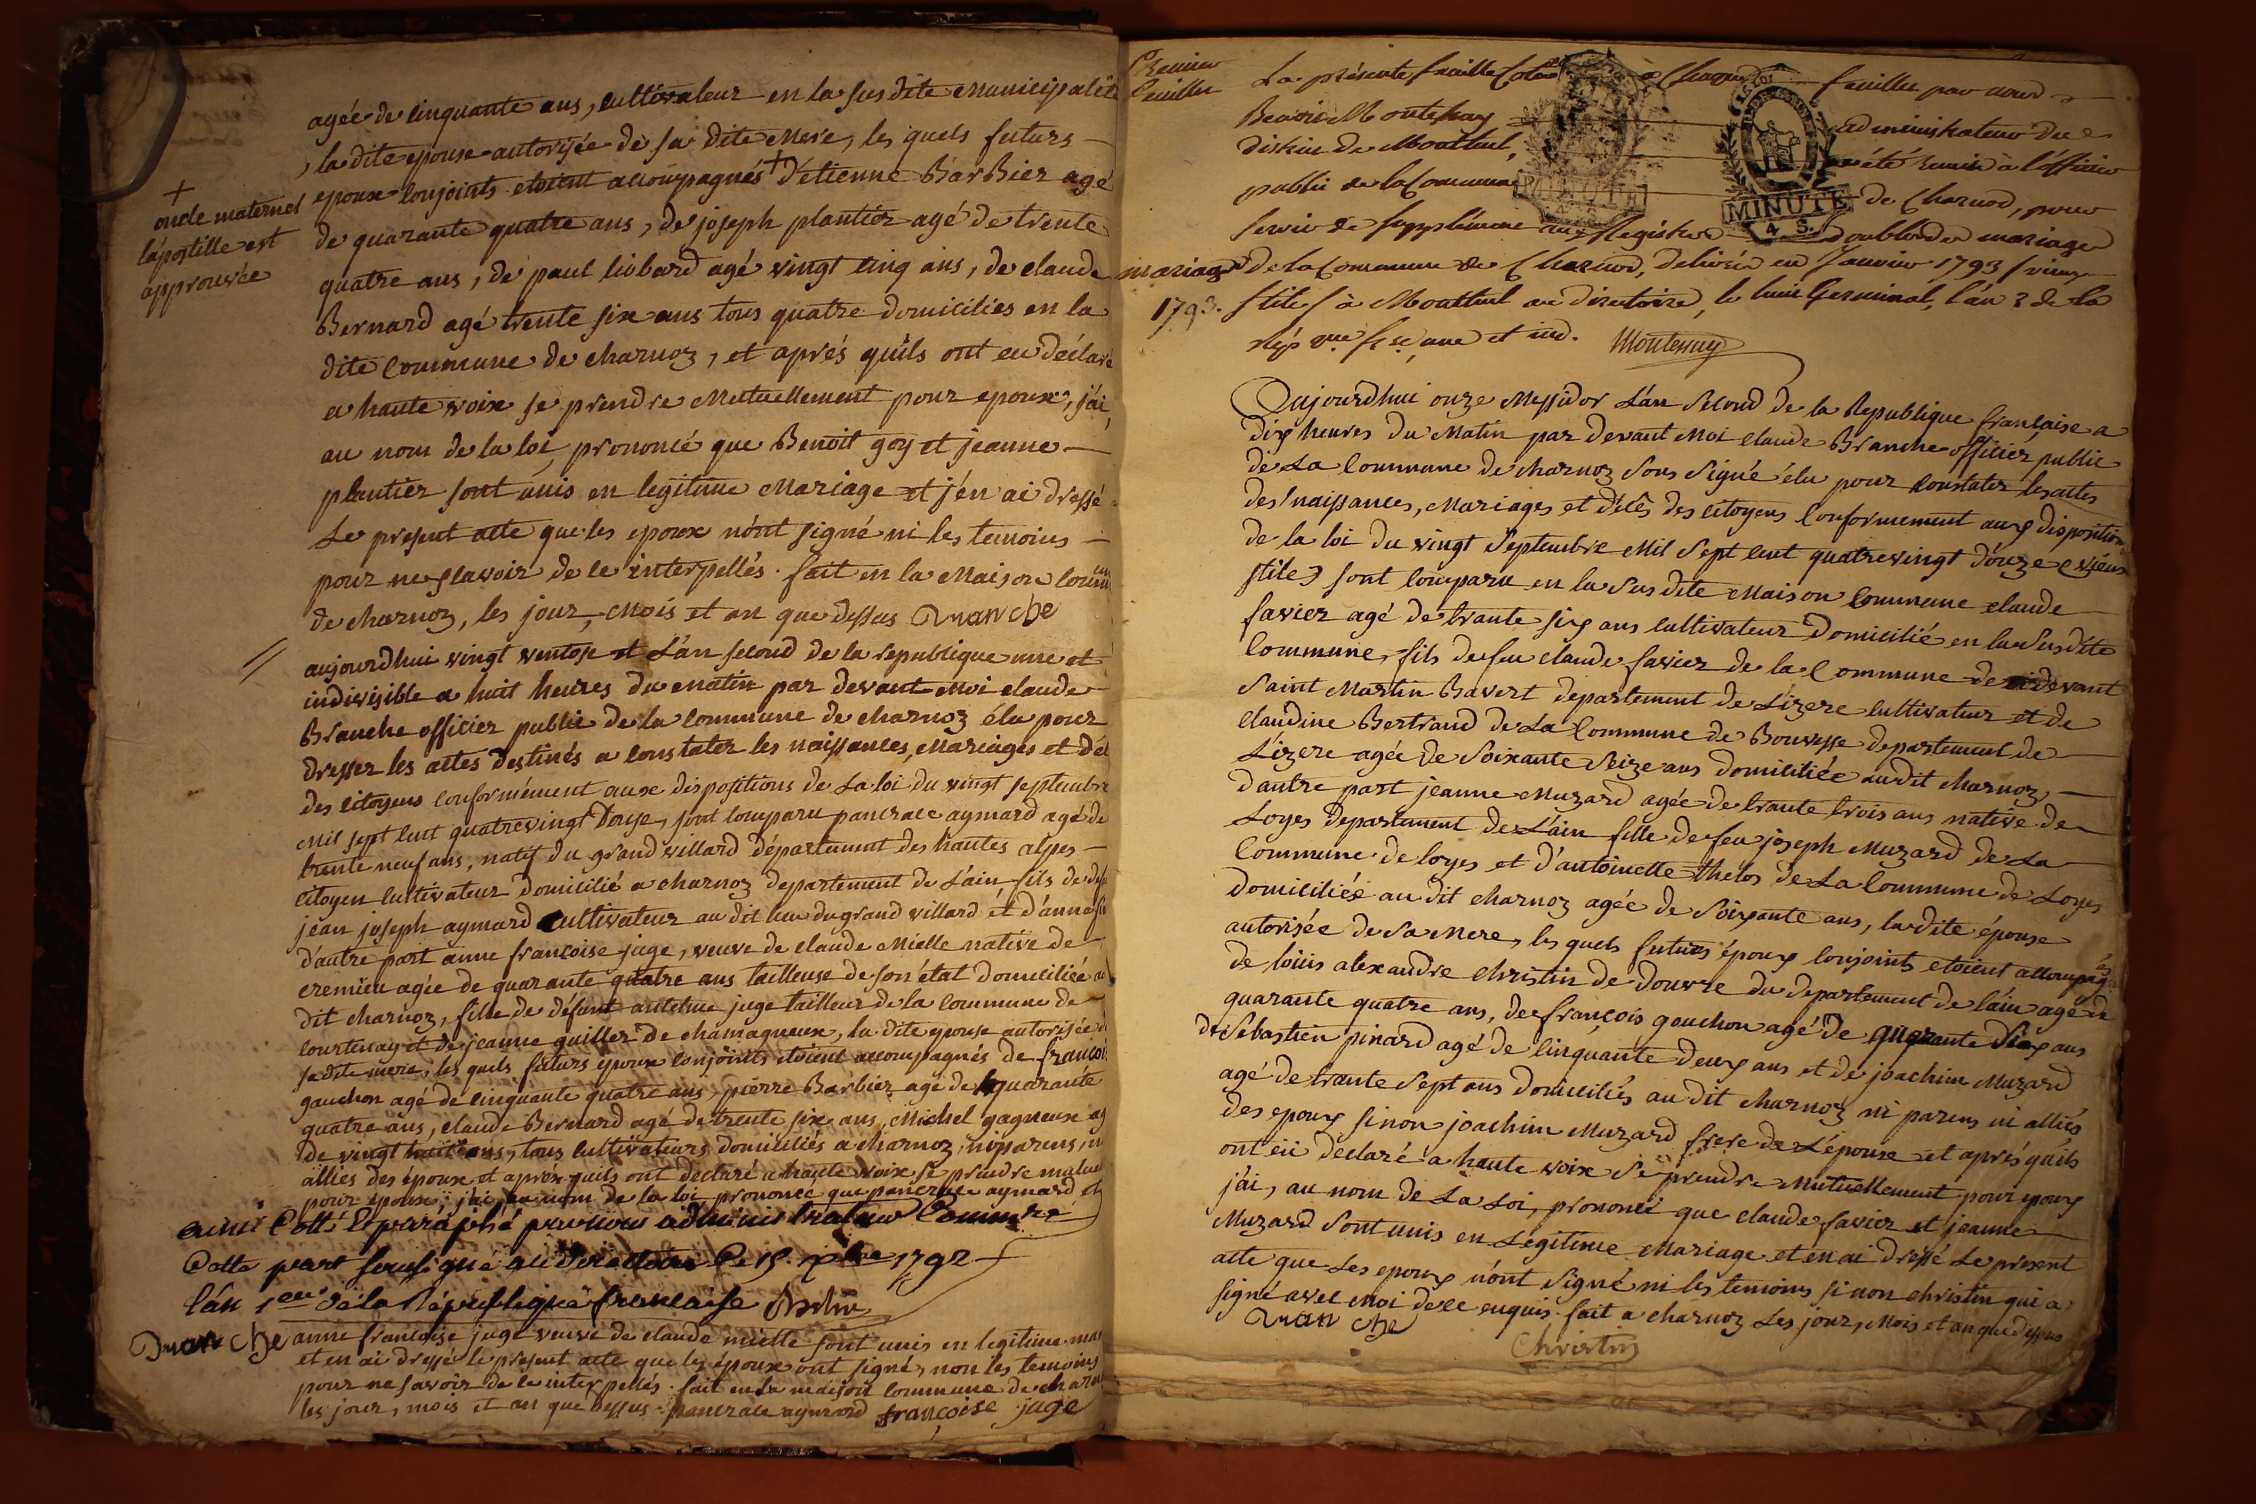 agée de cinquante ans, cultivateur en la sus dite municipalité
, la dite epouse autorisée de sa dite mere, les quels futurs
epoux conjoints etoient accompagnés + d'étienne BarBier agé
+
oncle maternel
l'apostille est
approuvée
de quarante quatre ans, de joseph plantier agé de trente
quatre ans, de paul liobard agé vingt cinq ans, de claude
Bernard agé trente six ans tous quatre domiciliés en la
dite Commune de charnoz, et aprés qu'ils ont eu déclaré
a haute voix se prendre Mutuellement pour epoux, j'ai,
au nom de la loi, prononcé que Benoit goy et jeanne
plantier sont unis en legitime Mariage et j'en ai dressé
Le present acte que les epoux n'ont signé ni les temoins
pour ne sçavoir de ce interpellés. fait en la Maison comm
de charnoz, les jour, mois et an que dessus Branche
aujourdhui vingt ventose et L'an second de la republique une et
indivisible a huit heures du matin par devant moi claude
Branche officier public de la commune de charnoz élu pour
dresser les actes destinés a constater les naissances, Mariages et déc
des citoyens conformément aux dispositions de La loi du vingt septembre
Mil sept cent quatrevingt Douze, sont comparu pancrace aymard agé de
trente neuf ans, natif du grand villard département des hautes alpes
citoyen cultivateur domicilié a charnoz departement de L'ain fils de
jean joseph aymard Cultivateur au dit lieu du grand villard et d'anne
d'autre part anne francoise juge, veuve de claude Mielle native de
cremieu agée de quarante quatre ans tailleuse de son état domiciliée au
dit charnoz, fille de défunt antoine juge tailleur de la commune de
courtenay et de jeanne quiller de chamagneux, la dite epouse autorisée de
sa dite mere, les quels futurs epoux conjoints etoient accompagnés de francois
gauchon agé de cinquante quatre ans, pierre Barbier agé de quarante
quatre ans, claude Bernard agé de trente six ans, Michel gagneux ag
de vingt huit ans, tous cultivateurs domiciliés a charnoz, ni parens, ni
alliés des époux et aprés qu'ils ont declaré a haute voix se prendre mutuel
pour époux, j'ai au nom de la loi prononcé que pancrace aymard et
ainsi Cotté & paraphé par nous administrateur Commre
Cotté part soussigné au directoire Ce 15 Xbre 1792
l'an 1er de la République francaise
Branche anne francoise juge veuve de claude mielle sont unis en legitime mar
et en ai dressé le present acte que les époux ont signé, non les temoins
pour ne savoir de ce interpellés. fait en la maison commune de charn
les jour, mois et an que dessus. pancrace aymard françoise juge
Premier
feuillet
La présente feuille feuillet par nous
Benoit Montessuy administrateur du
district de Montluel, a été remis à l'officier
public de la Commune de Charnod, pour
servir de supplément aux Registres doubles des mariages
mariages
1793.
de la Commune de Charnod, délivrés en Janvier 1793 (vieux
stile) à Montluel au directoire, le huit Germinal, l'an 2 de la
Rép. que fse, une et ind. Montessuy
Aujourdhui onze Messidor L'an Second de la Republique francaise a
dix heures du Matin par devant Moi claude Branche officier public
de La Commune de charnoz Sous Signé élu pour Constater les actes
des naissances, Mariages et décês des citoyens Conformement aux disposition
de la loi du vingt Septembre Mil Sept cent quatrevingt douze (vieux
stile) sont comparu en la Sus dite Maison Commune claude
favier agé de trante six ans cultivateur domicilié en la Susdite
Commune, fils de feu claude favier de la Commune de cidevant
Saint Martin Bavert departement de Lizere cultivateur et de
claudine Bertrand de La Commune de Bouvesse departement de
L'izere agée de Soixante Seize ans domiciliée audit charnoz,
d'autre part jeanne Muzard agée de trante trois ans native de
Loyes departement de L'ain fille de feu joseph Muzard de La
Commune de loyes et d'antoinette thélos de La Commune de Loyes
domiciliée au dit charnoz agée de Soixante ans, la dite épouse
autorisée de Sa Mere, les quels futurs époux conjoints etoient accompagnés
de loüis alexandre christin de Douvre du departement de l'ain agé de
quarante quatre ans, de françois gauchon agé de quarante Six ans
de Sebastien pinard agé de cinquante deux ans et de joachim Muzard
agé de trante Sept ans domiciliés au dit charnoz ni parens ni alliés
des epoux sinon joachim Muzard frere de L'épouse et aprés qu'ils
ont eü declaré a haute voix Se prendre Mutuellement pour epoux
j'ai, au nom de La Loi, prononcé que claude favier et jeanne
Muzard Sont unis en Légitime Mariage et en ai dressé Le present
acte que Les epoux n'ont Signé ni les temoins si non christin qui a
signé avec moi de ce enquis. fait a charnoz Les jour, Mois et an que dessus
Branche
Christin
MINUTE
4 S.
MINUTE
4 S.